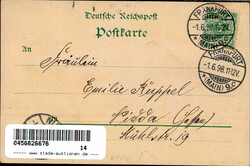 Deutsche Reichspost
Postkarte
FRANKFURT
-1.6.98.11-12V.
* (MAIN) 9.c
FRANKFURT
-1.6.98.11-12V.
* (MAIN) 9.c
An
Fräulein
Emilie Küppel
Nidda
0456626676
14
www.slada-auktionen.de